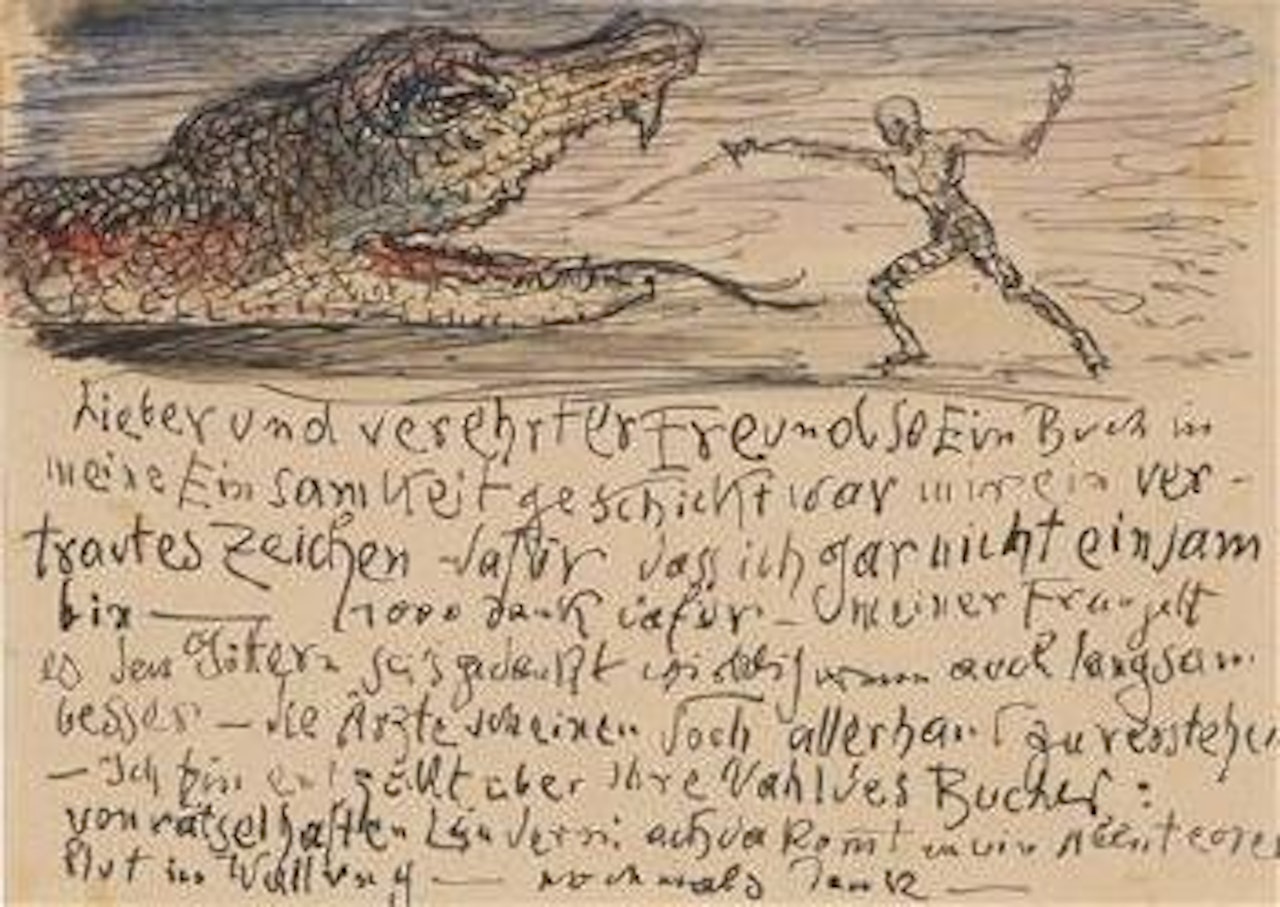 Lieber und verehrter Freund So Ein Buch in
meine Einsamkeit geschickt war mir ein ver-
trautes Zeichen dafür dass ich gar nicht einsam
bin — 1000 dank dafür - meiner Frau geht
es den Göttern sei's gedankt auch langsam
besser — die Ärzte scheinen doch allerhand zu verstehen
— Ich bin entzückt über Ihre Wahl des Buches:
von rätselhaften Ländern: ach da komt mein
Blut in Wallung — nochmals Dank —